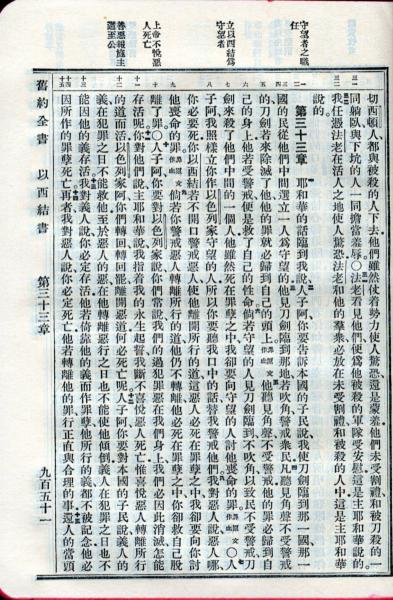 守望者之職
任
立以西結爲
守望者
上帝不悅惡
人死亡
善惡報應主
道至公
切西頓人都與被殺的人下去他們雖然仗着勢力使人驚恐還是蒙羞他們未受割禮和被刀殺的一
同躺臥與下坑的人一同擔當羞辱○法老看見他們便爲他被殺的軍隊受安慰這是主耶和華說的
我任憑法老在活人之地使人驚恐法老和他的羣衆必放在未受割禮和被殺的人中這是主耶和華
說的
第三十三章 耶和華的話臨到我說人子阿你要告訴本國的子民說我使刀劍臨到那一國那一
國的民從他們中間選立一人爲守望的他見刀劍臨到那地若吹角警戒衆民凡聽見角聲不受警戒
的刀劍若來除滅了他的罪就必歸到自己的頭上 他聽見角聲不受警戒他的罪必歸到自
己的身上他若受警戒便是救了自己的性命倘若守望的人見刀劍臨到不吹角以致民不受警戒刀
劍來殺了他們中間的一個人他雖然死在罪孽之中我卻要向守望的人討他喪命的罪 ○人
子阿我照樣立你作以色列家守望的人所以你要聽我口中的話替我警戒他們我對惡人說惡人哪
你必要死你以西結若不開口警戒惡人使他離開所行的道這惡人必死在罪孽之中我卻要向你討
他喪命的罪 倘若你警戒惡人轉離所行的道他仍不轉離他必死在罪孽之中你卻救自己脫
離了罪○人子阿你要對以色列家說你們常說我們的過犯罪惡在我們身上我們必因此消滅怎能
存活呢你對他們說主耶和華說我指着我的永生起誓我斷不喜悅惡人死亡惟喜悅惡人轉離所行
的道而活以色列家阿你們轉回轉回離開惡道何必死亡呢人子阿你要對本國的子民說義人的
義在犯罪之日不能救他至於惡人的惡在他轉離惡行之日也不能使他傾倒義人在犯罪之日也不
能因他的義存活我對義人說你必定存活他若倚靠他的義而作罪孽他所行的義都不被記念他必
因所作的罪孽死亡再者我對惡人說你必定死亡他若轉離他的罪行正直與合理的事還人的當頭
舊約全書 以西結書 第三十三章 九百五十一